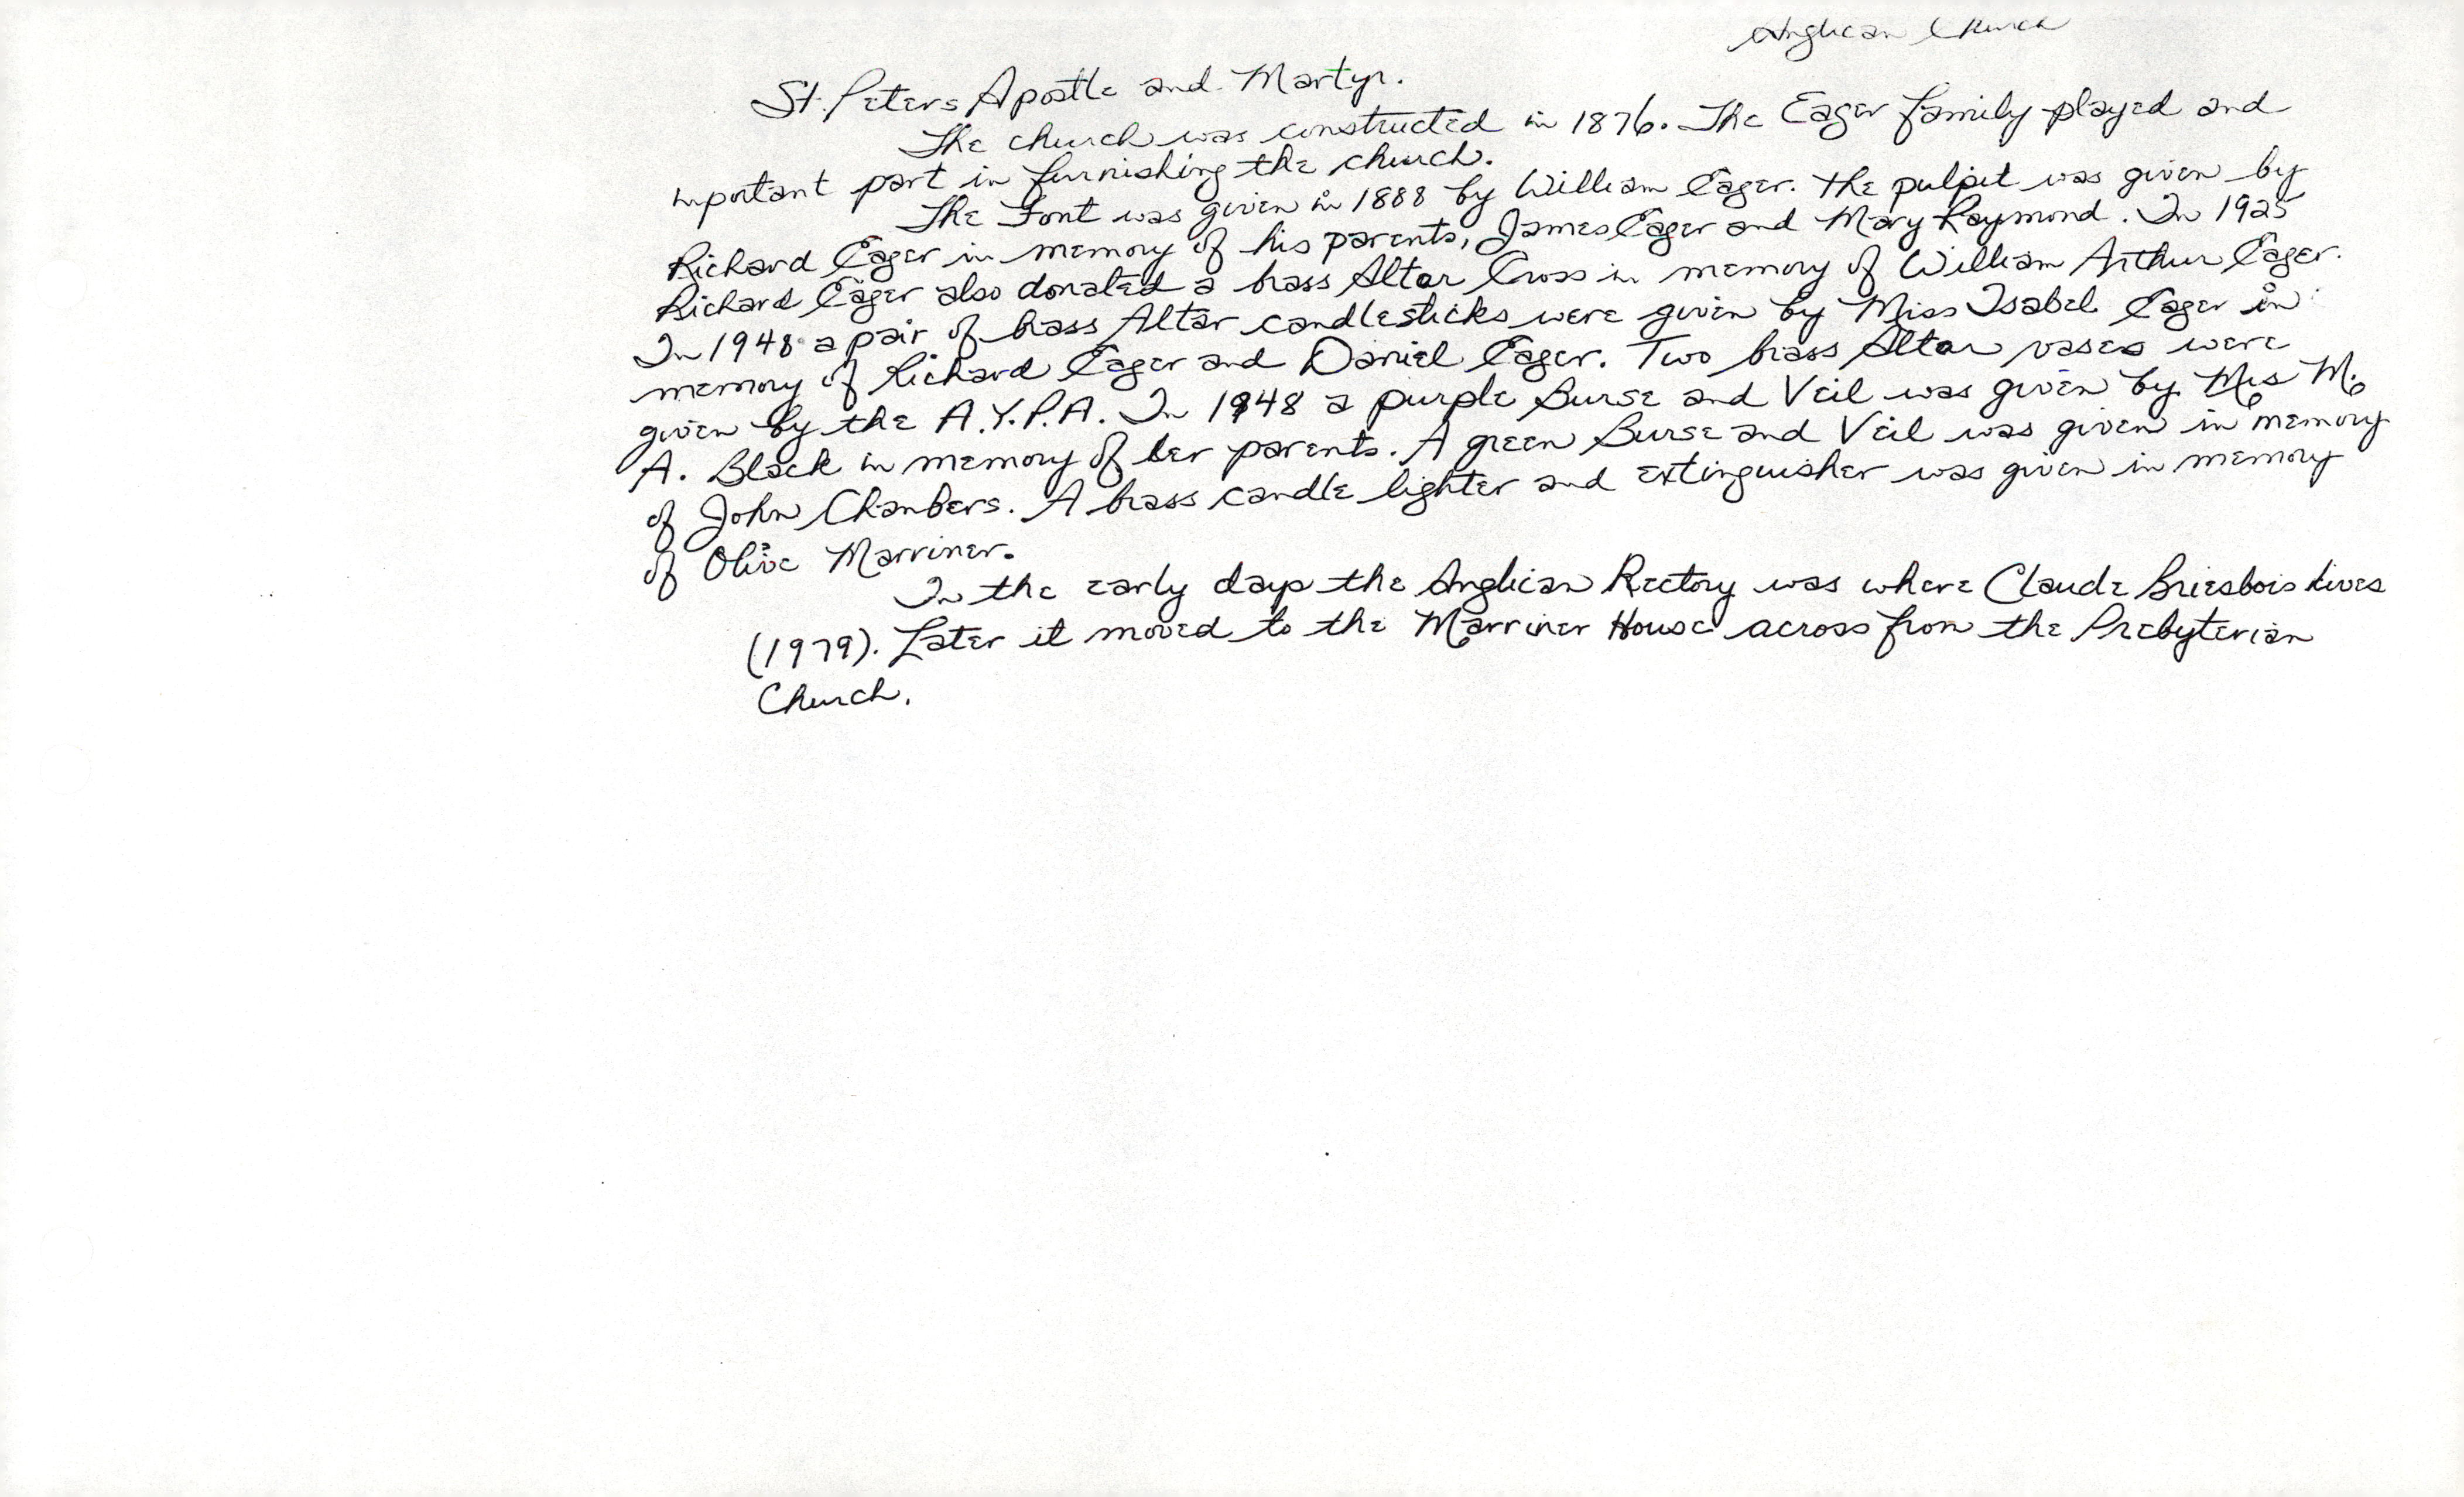 Anglican Church
St. Peters Apostle and Martyr.
The church was constructed in 1876. The Eager family played and
mportant part in furnishing the church.
The Font was given in 1888 by William Eager. The pulpit was given by
Richard Eager in memory of his parents, James Eager and Mary Raymond. In 1925
Richard Eager also donated a brass Altar Cross in memory of William Arthur Eager.
In 1948 a pair of brass Altar candlesticks were given by Miss Isabel Eager in
memory of Richard Eager and Daniel Eager. Two brass Altar vases were
given by the A.Y.P.A. In 1948 a purple Burse and Veil was given by Mrs M.
A. Black in memory of her parents. A green Burse and Veil was given in memory
of John Chambers. A brass candle lighter and extinguisher was given in memory
of Olive Marriner.
In the early days the Anglican Rectory was where Claude Briesbois lives
(1979). Later it moved to the Marriner House across from the Prebyterian
Church.